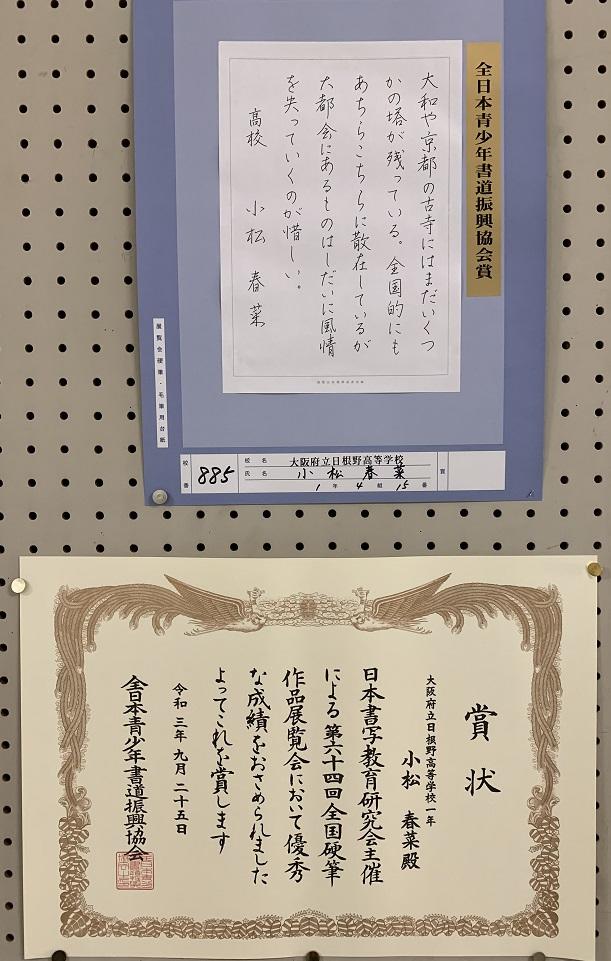 全日本青少年書道振興協会賞
大和や京都の古寺にはまだいくつ
かの塔が残っている。全国的にも
あちらこちらに散在しているが
大都会にあるものはしだいに風情
を失っていくのが惜しい。
高校 小松 春菜
展覧会硬筆・毛筆用台紙
校番 885
校名 大阪府立日根野高等学校
氏名 小松 春菜
1年4組15番
賞
賞状
大阪府立日根野高等学校一年
小松 春菜殿
日本書写教育研究会主催
による第六十四回全国硬筆
作品展覧会において優秀
な成績をおさめられました
よってこれを賞します
令和三年九月二十五日
全日本青少年書道振興協会